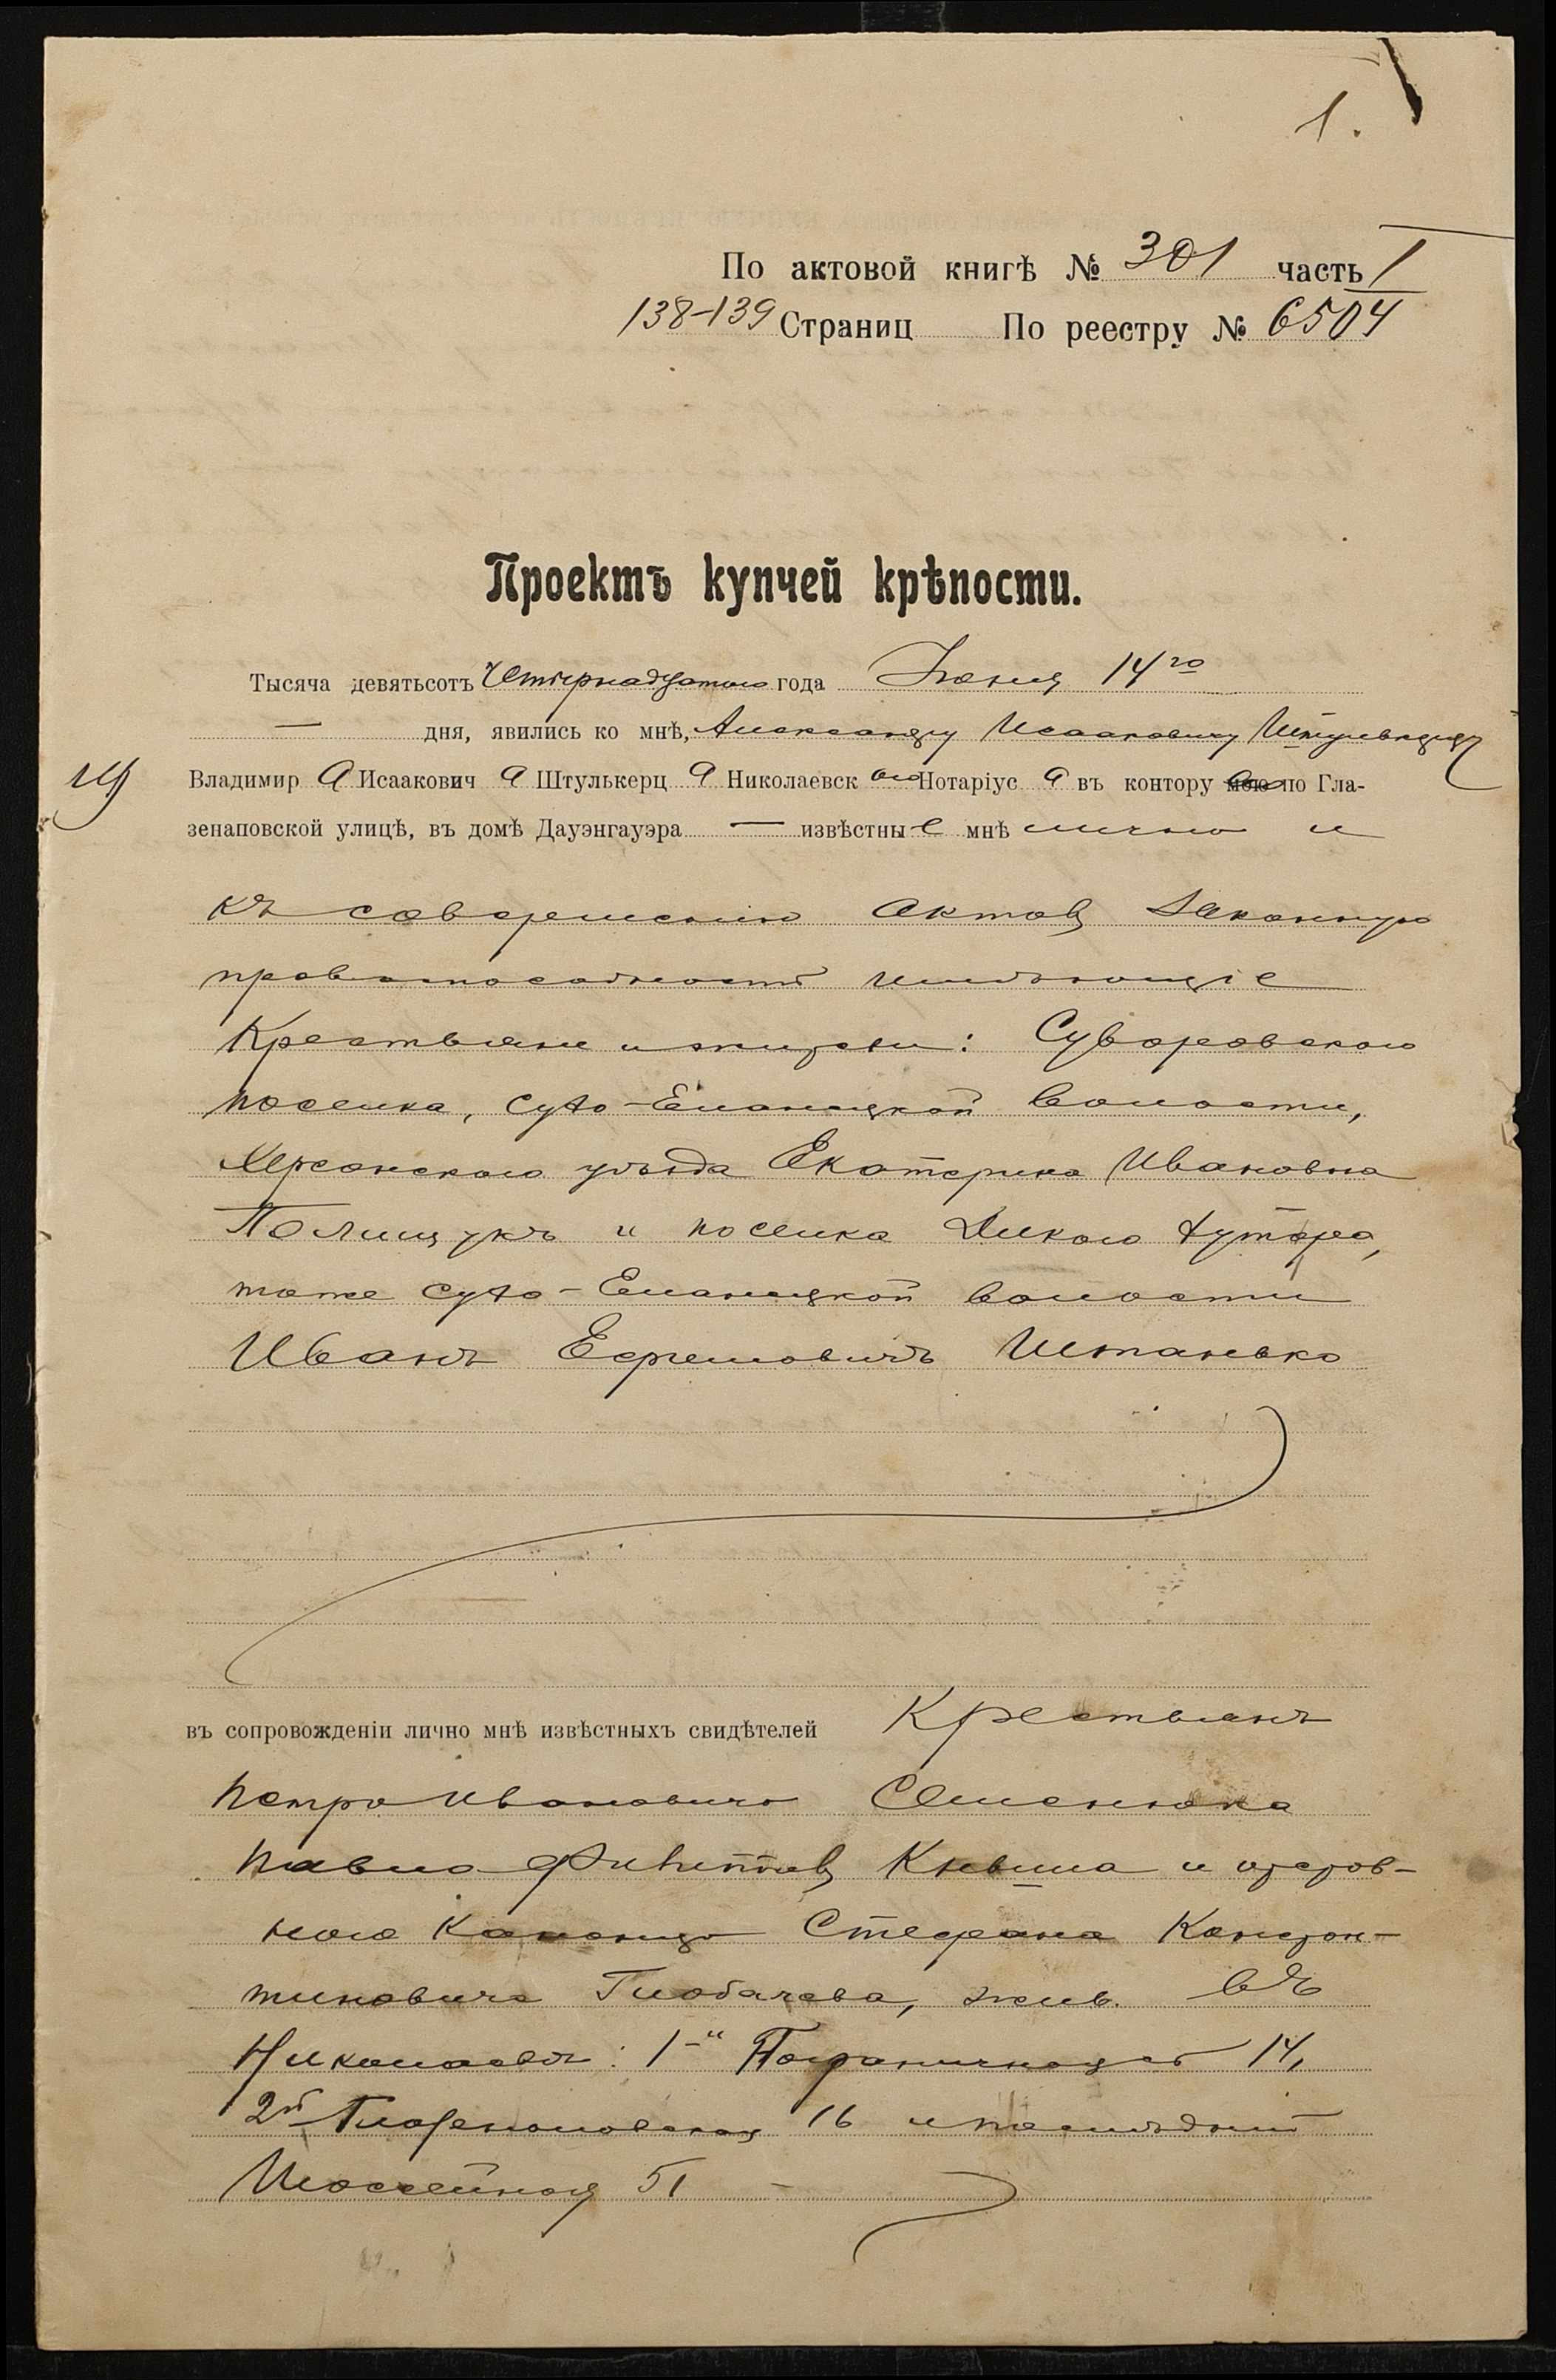 1.
По актовой книгѣ № 301 часть I
138-139 Страниц По реестру № 6504
Проектъ купчей крѣпости.
Тысяча девятьсотъ четырнадцатого года Іюня 14го
— дня, явились ко мнѣ, Александру Исааковичу
Владимир а Исаакович а Штулькерц а Николаевск ого Нотаріус а въ контору мою по Гла-
зенаповской улицѣ, въ домѣ Дауэнгауэра — извѣстны е мнѣ лично и
къ совершенію актовъ законную
правоспособность имѣющіе
Крестьяне и жители: Суворовского
поселка, Сухо-Еланецкой волости,
Херсонского уѣзда Екатерина Ивановна
Полищукъ и поселка Дикого Хутора,
тоже Сухо-Еланецкой волости
Иванъ Ефремовичъ Штанько
въ сопровожденіи лично мнѣ извѣстныхъ свидѣтелей Крестьянъ
Петра Ивановича Семенюка
Павла и
Стефана Констан-
тиновича Глобачева, жив. въ
Николаевѣ: 1-й Пограничная 14,
2й Глазенаповская 16 и послѣдній
Шоссейная 51